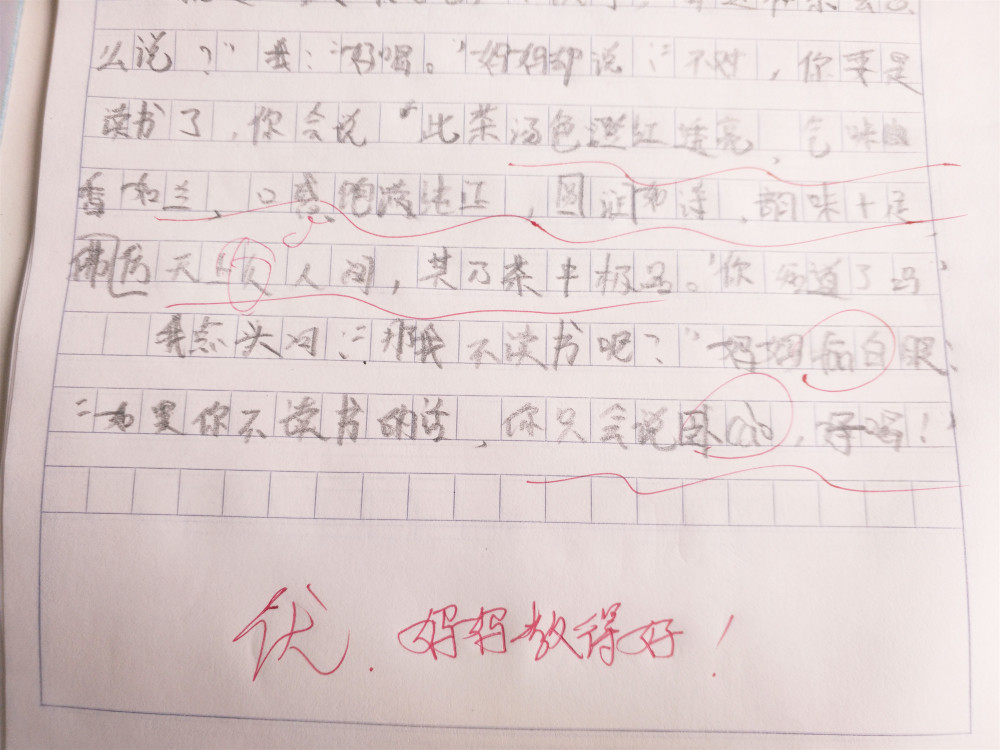 么说？”我：“好喝。”妈妈却说：“不对，你要是
读书了，你会说“此茶汤色澄红透亮，气味幽
香如兰，口感饱满纯正，圆润如诗，韵味十足
佛陀天上人间，茶乃茶中极马。”你知道了吗
我点头问：“那我不读书呢？”妈妈fan白眼：
“如果你不读书的话，你只会说卧cào，好喝！”
优．妈妈教得好！